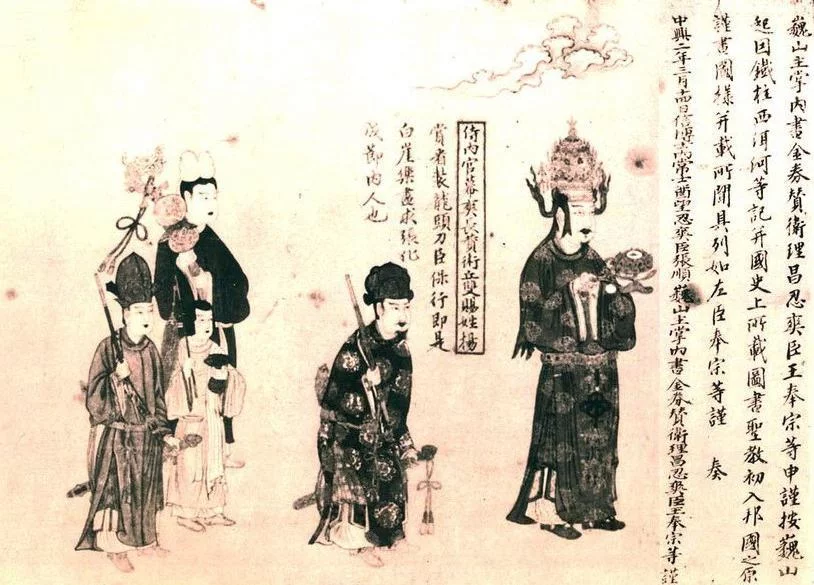 巍山主掌內書金券贊衛理昌忍爽臣王奉宗等申謹按巍山
起因鐵柱西洱河等記并國史上所載圖書聖教初入邦國之原
謹畫圖樣并載所開具列如左臣奉宗等謹 奏
中興二年三月十四日信博士內常士酋望忍爽臣張順巍山主掌內書金券贊衛理昌忍爽臣王奉宗等謹
侍內官幕爽長贊衛丘雙賜姓楊
賞者裝龍頭刀臣保行即是
白崖樂盡求張化
成節內人也